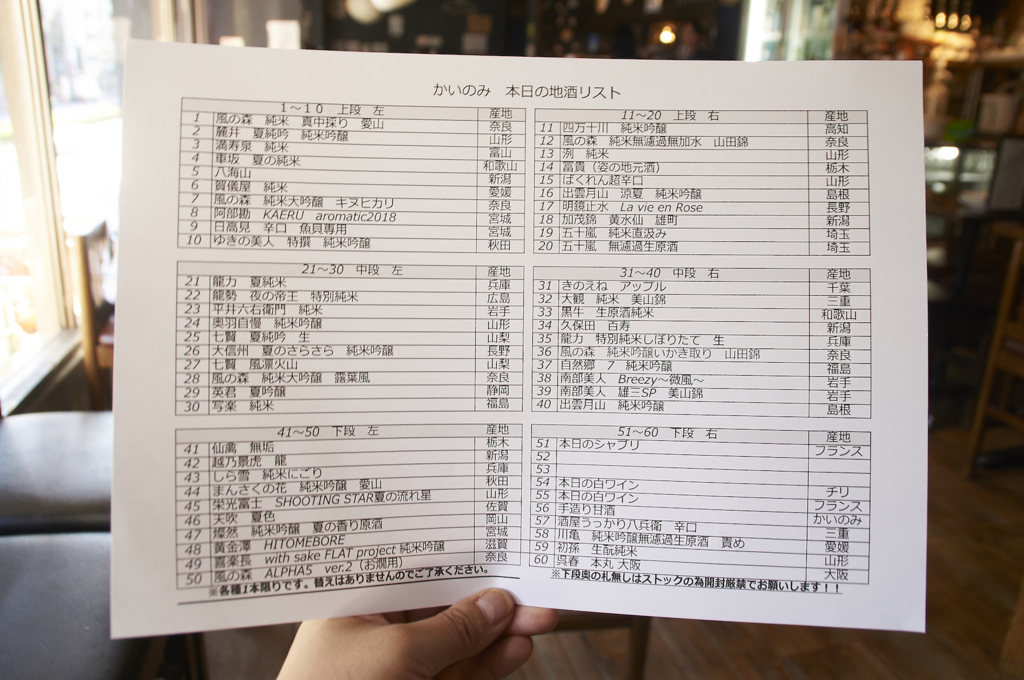 かいのみ 本日の地酒リスト
1～10 上段 左 産地
1 風の森 純米 真中採り 愛山 奈良
2 麓井 夏純吟 純米吟醸 山形
3 満寿泉 純米 富山
4 車坂 夏の純米 和歌山
5 八海山 新潟
6 賀儀屋 純米 愛媛
7 風の森 純米大吟醸 キヌヒカリ 奈良
8 阿部勘 KAERU aromatic2018 宮城
9 日高見 辛口 魚貝専用 宮城
10 ゆきの美人 特撰 純米吟醸 秋田
11～20 上段 右 産地
11 四万十川 純米吟醸 高知
12 風の森 純米無濾過無加水 山田錦 奈良
13 洌 純米 山形
14 富貴（姿の地元酒） 栃木
15 ばくれん超辛口 山形
16 出雲月山 涼夏 純米吟醸 島根
17 明鏡止水 La vie en Rose 長野
18 加茂錦 黄水仙 雄町 新潟
19 五十嵐 純米直汲み 埼玉
20 五十嵐 無濾過生原酒 埼玉
21～30 中段 左 産地
21 龍力 夏純米 兵庫
22 龍勢 夜の帝王 特別純米 広島
23 平井六右衛門 純米 岩手
24 奥羽自慢 純米吟醸 山形
25 七賢 夏純吟 生 山梨
26 大信州 夏のさらさら 純米吟醸 長野
27 七賢 風凛火山 山梨
28 風の森 純米大吟醸 露葉風 奈良
29 英君 夏吟醸 静岡
30 写楽 純米 福島
31～40 中段 右 産地
31 きのえね アップル 千葉
32 大観 純米 美山錦 三重
33 黒牛 生原酒純米 和歌山
34 久保田 百寿 新潟
35 龍力 特別純米しぼりたて 生 兵庫
36 風の森 純米吟醸いかき取り 山田錦 奈良
37 自然郷 7 純米吟醸 福島
38 南部美人 Breezy～微風～ 岩手
39 南部美人 雄三SP 美山錦 岩手
40 出雲月山 純米吟醸 島根
41～50 下段 左 産地
41 仙禽 無垢 栃木
42 越乃景虎 龍 新潟
43 しら雪 純米にごり 兵庫
44 まんさくの花 純米吟醸 愛山 秋田
45 栄光冨士 SHOOTING STAR夏の流れ星 山形
46 天吹 夏色 佐賀
47 燦然 純米吟醸 夏の香り原酒 岡山
48 黄金澤 HITOMEBORE 宮城
49 喜楽長 with sake FLAT project 純米吟醸 滋賀
50 風の森 ALPHA5 ver.2（お燗用） 奈良
※各種1本限りです。替えはありませんのでご了承ください。
51～60 下段 右 産地
51 本日のシャブリ フランス
52
53
54 本日の白ワイン チリ
55 本日の白ワイン フランス
56 手造り甘酒 かいのみ
57 酒屋うっかり八兵衛 辛口 三重
58 川亀 純米吟醸無濾過生原酒 責め 愛媛
59 初孫 生酛純米 山形
60 呉春 本丸 大阪 大阪
※下段奥の札無しはストックの為開封厳禁でお願いします！！